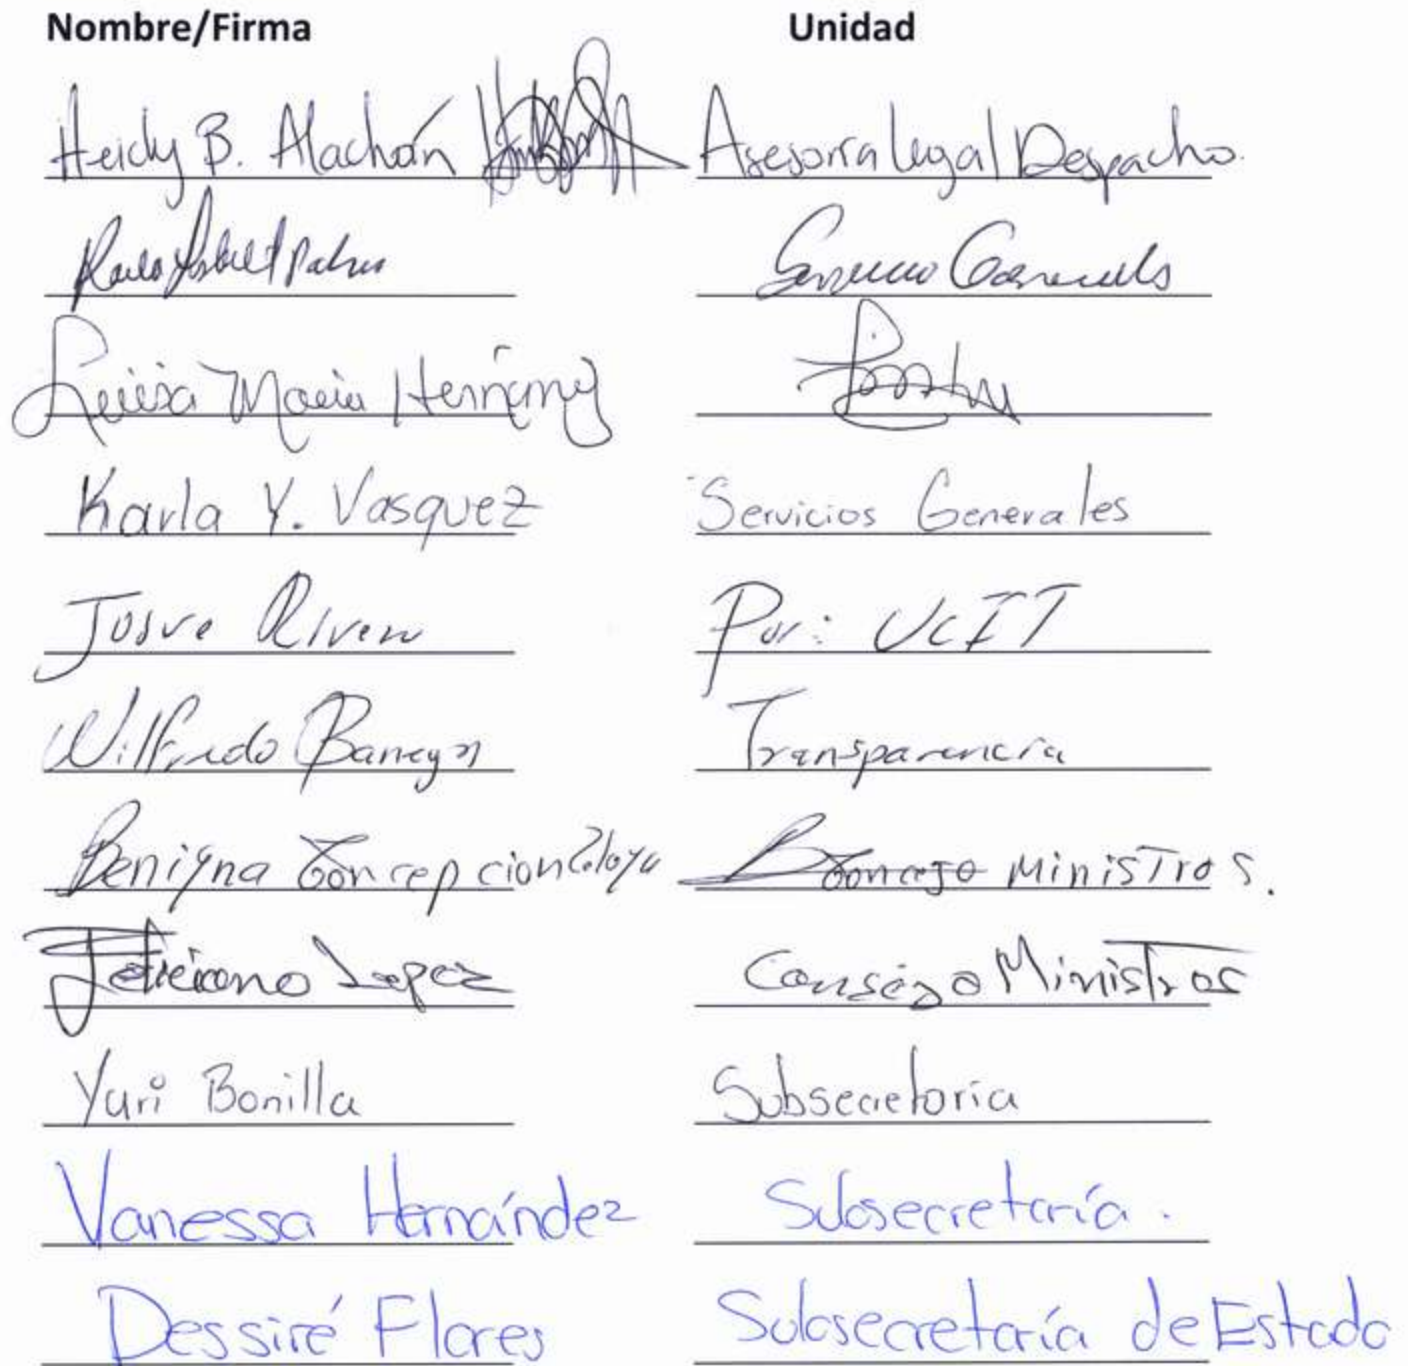 Nombre/Firma Unidad
Heidy B. Alachán Asesoría Legal Despacho.
Servicio Generales
Luisa Maria
Karla Y. Vasquez Servicios Generales
Josue Rivera Por: UCIT
Wilfredo Banegas Transparencia
Benigna Concepcion Consejo MinisTros.
Feliciano Lopez Consejo Ministros
Yuri Bonilla Subsecretoría
Vanessa Hernández Subsecretaría.
Dessiré Flores Subsecretaría de Estado